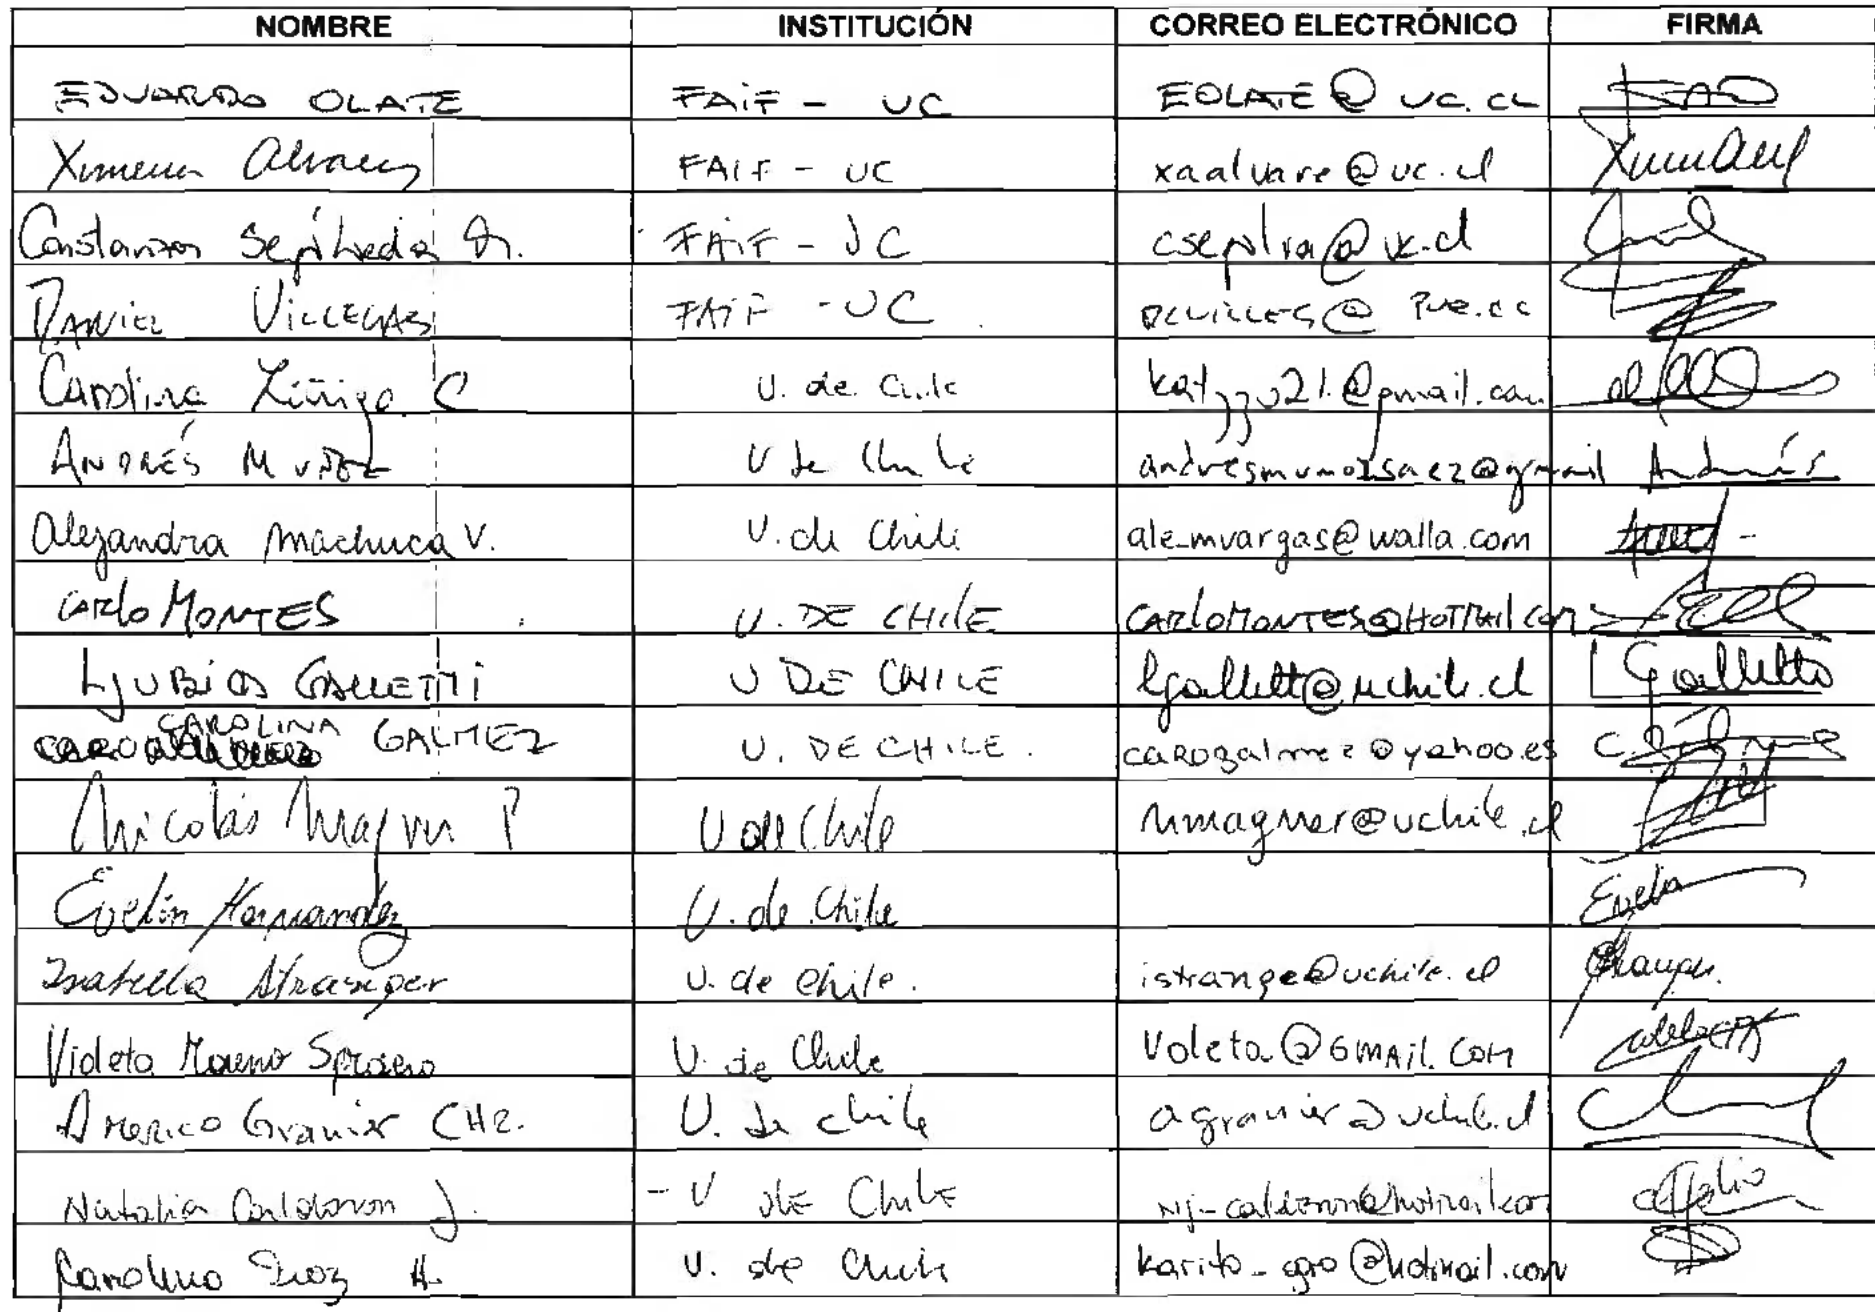 NOMBRE INSTITUCIÓN CORREO ELECTRÓNICO FIRMA
EDUARDO OLATE FAIF - UC EOLATE@UC.CL
Ximena Alvarez FAIF - UC xaalvare@uc.cl
Constanza Sepúlveda FAIF - UC csepulva@uc.cl
DANIEL VILLEGAS FAIF - UC
Carolina Zúñiga C U. de Chile
ANDRÉS MUÑOZ U de Chile andresmunozsaez@gmail Andrés
Alejandra Machuca V. U. de Chile ale_mvargas@walla.com
CARLO MONTES U. DE CHILE CARLOMONTES@HOTMAIL.COM
LJUBICA GALLETTI U DE CHILE lgallett@uchile.cl LGalletti
CAROLINA GALMEZ U. DE CHILE. carogalmez@yahoo.es
Nicolás Magner P U de Chile nmagner@uchile.cl
Evelin Hernandez U. de Chile Evelin
Isabella Stranger U. de Chile. istrange@uchile.cl
Violeta Moreno U. de Chile Voleta@GMAIL.COM
Americo Granier CHR. U. de chile agranier@uchile.cl
Natalia Calderon J. - U de Chile nj-calderon@hotmail.com
Carolina Diaz H. U. de Chile karito_agro@hotmail.com